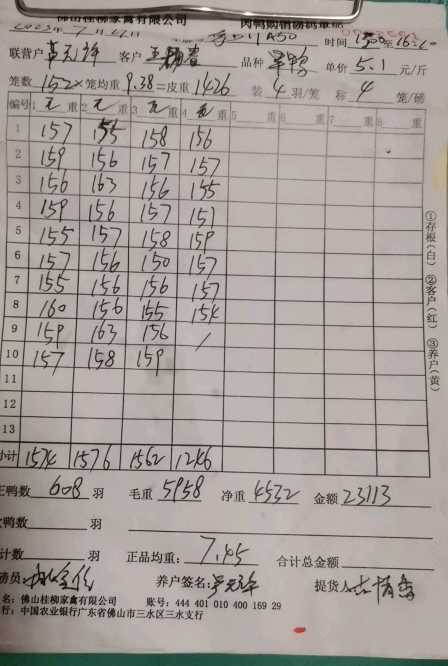 佛山桂柳家禽有限公司 肉鸭购销磅码单
时间
联营户 客户 品种 草鸭 单价 5.1 元/斤
笼数 152 × 笼均重 9.38 = 皮重 1426 装 4 羽/笼 称 4 笼/磅
编号 1 毛 重 2 毛 重 3 毛 重 4 毛 重 5 重 6 重 7 重 8 重
1 157 155 158 156
2 159 156 157 157
3 156 163 156 155
4 159 156 157 151
5 155 157 158 159
6 157 156 150 157
7 155 156 156 157
8 160 156 155 154
9 159 163 156 /
10 157 158 159
11
12
13
小计 1574 1576 1562 1246
正鸭数 608 羽 毛重 5958 净重 4532 金额 23113
鸭数 羽
计数 羽 正品均重: 7.45 合计总金额
磅员: 养户签名: 提货人
名: 佛山桂柳家禽有限公司 账号: 444 401 010 400 169 29
行: 中国农业银行广东省佛山市三水区三水支行
①存根(白) ②客户(红) ③养户(黄)